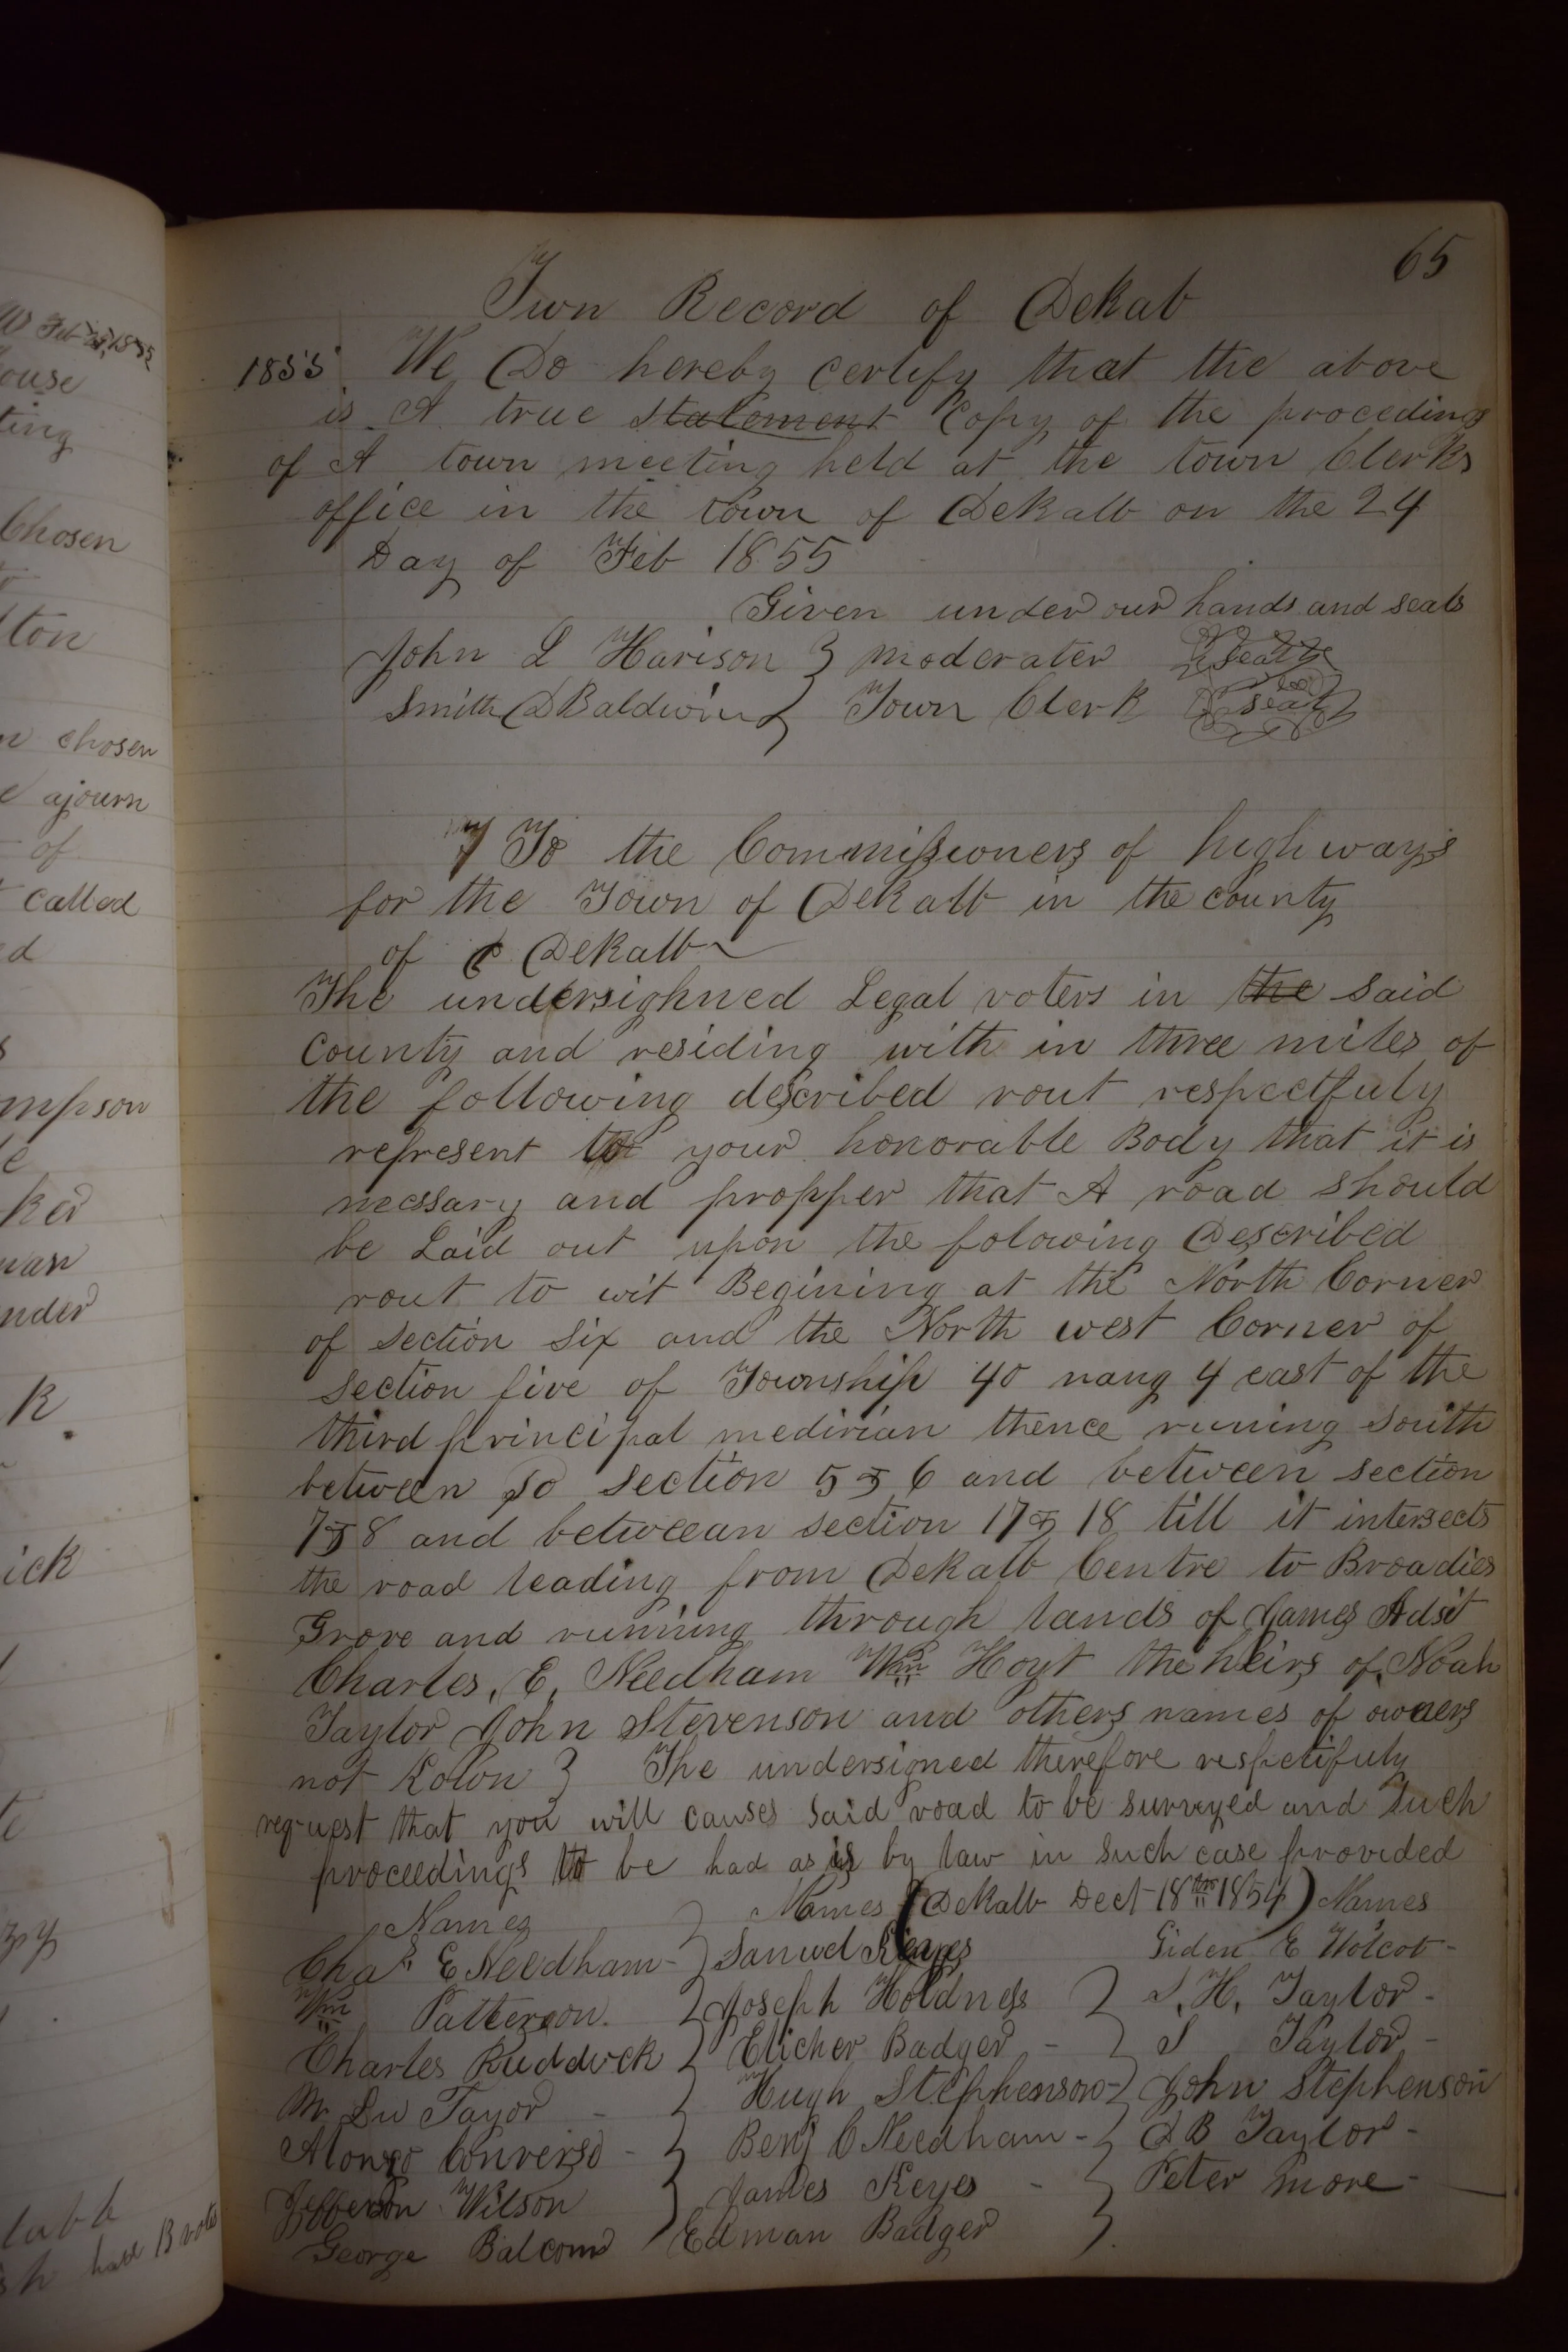 65
Twn Record of Dekab
1855 We Do hereby certify that the above
is A true statement Copy of the proceedings
of A town meeting held at the town Clerks
office in the town of Dekalb on the 24
Day of Feb 1855
Given under our hands and seals
John L Harison } moderater seal
Smith D Baldwin } Town Clerk seal
7 To the Commissioners of high ways
for the Town of Dekalb in the county
of Dekalb
The undersighned Legal voters in the said
County and residing with in three miles of
the following described rout respectfuly
represent to your honorable Body that it is
necssary and propper that A road should
be Laid out upon the folowing Described
rout to wit Begining at the North Corner
of Section Six and the North west Corner of
Section five of Township 40 rang 4 east of the
third principal medirian thence runing South
between so section 5 & 6 and between section
7 & 8 and betweean section 17 & 18 till it intersects
the road leading from Dekalb Centre to Broadies
Grove and running through lands of James Adsit
Charles, E, Needham Wm Hoyt the heirs of Noah
Taylor John Stevenson and others names of owners
not } The undersigned therefore respectifuly
request that you will causes said road to be surveyed and Such
proceedings to be had as is by law in such case provided
Names Names (Dekalb Dect 18th 1854) Names
Chas E Needham - } Samuel Keyes Giden E Wolcot -
Wm Patterson. } Joseph Holdness } S. H. Taylor -
Charles Ruddock } Elicher Badger - } S Taylor -
Mr Du Tayor - } Hugh Stephenson - } John Stephenson
Alonzo Converso - } Benj C Needham - } D B Taylor -
Jefferson Wilson } James Keyes - } Peter more -
George Balcomb Edman Badger }
ouse
ting
Chosen
lton
chosen
ajourn
of
called
ed
mpson
ked
man
nder
K.
ick
have B